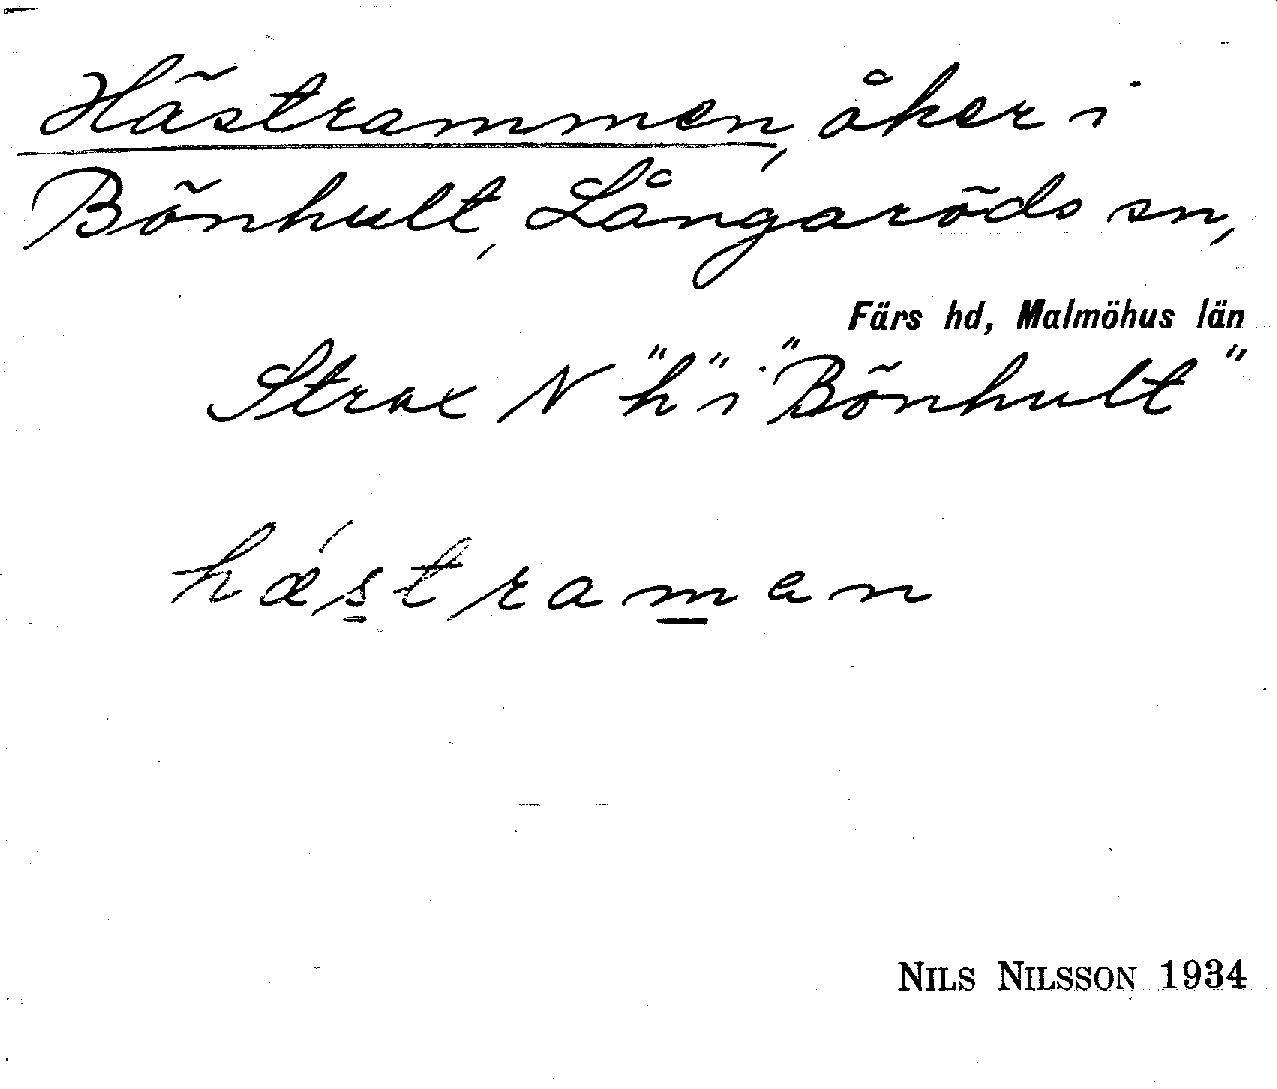 Hästrammen, åker i
Bönhult, Långaröds sn,
Färs hd, Malmöhus län
Strax N "h" i "Bönhult"
hǽstramen
NILS NILSSON 1934